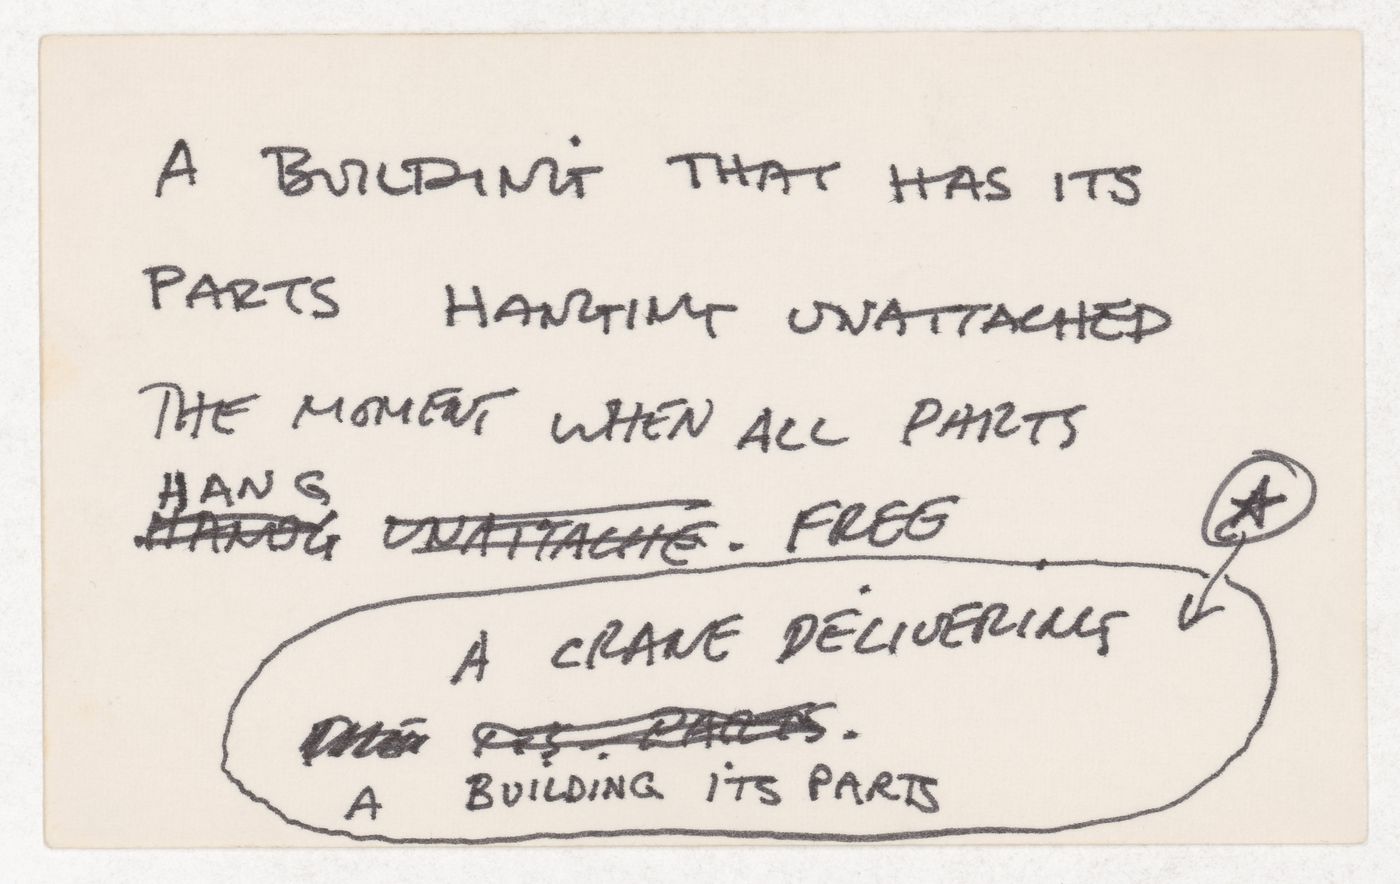 A BUILDING THAT HAS ITS
PARTS HANGING UNATTACHED
THE MOMENT WHEN ALL PARTS
HANG
UNATTACHE. FREE
A CRANE DELIVERING
ITS PARTS.
A BUILDING ITS PARTS